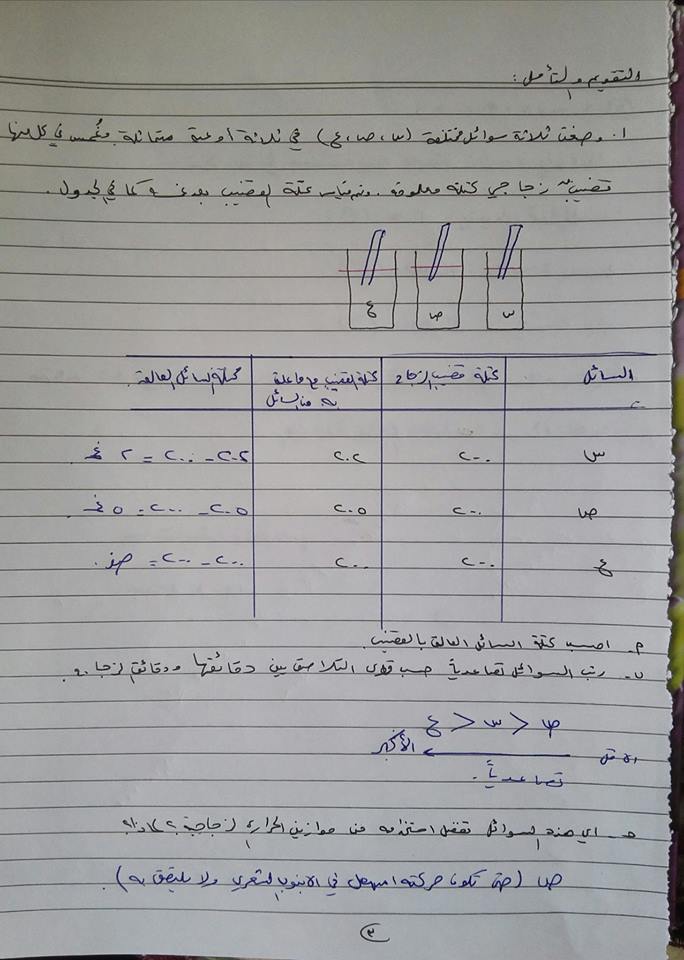 التقويم والتأمل:
١. وضعت ثلاثة سوائل مختلفة (س، ص، ع) في ثلاثة أوعية متماثلة وغُمس في كل منها
قضيب زجاجي كتلته معلومة. وتم قياس كتلة القضيب بعد غـ كما في الجدول.
ع ص س
السائل كتلة قضيب الزجاج كتلة القضيب مع ما علق كتلة السائل العالقة
به من السائل
س ٢٠٠ ٢٠٢ ٢٠٢ - ٢٠٠ = ٢ غ
ص ٢٠٠ ٢٠٥ ٢٠٥ - ٢٠٠ = ٥ غ
ع ٢٠٠ ٢٠٠ ٢٠٠ - ٢٠٠ = صفر
م- احسب كتلة السائل العالق بالقضيب.
ب- رتب السوائل تصاعدياً حسب قوى التلاصق بين دقائقها ودقائق الزجاج.
ص > س > ع
الاقل الأكبر
تصاعدياً.
هـ- اي هذه السوائل تفضل استخدامه في موازين الحرارة الزجاجية؟ لماذا؟
ص (حتى تكون حركته اسهل في الانبوب الشعري ولا يلتصق به).
٣